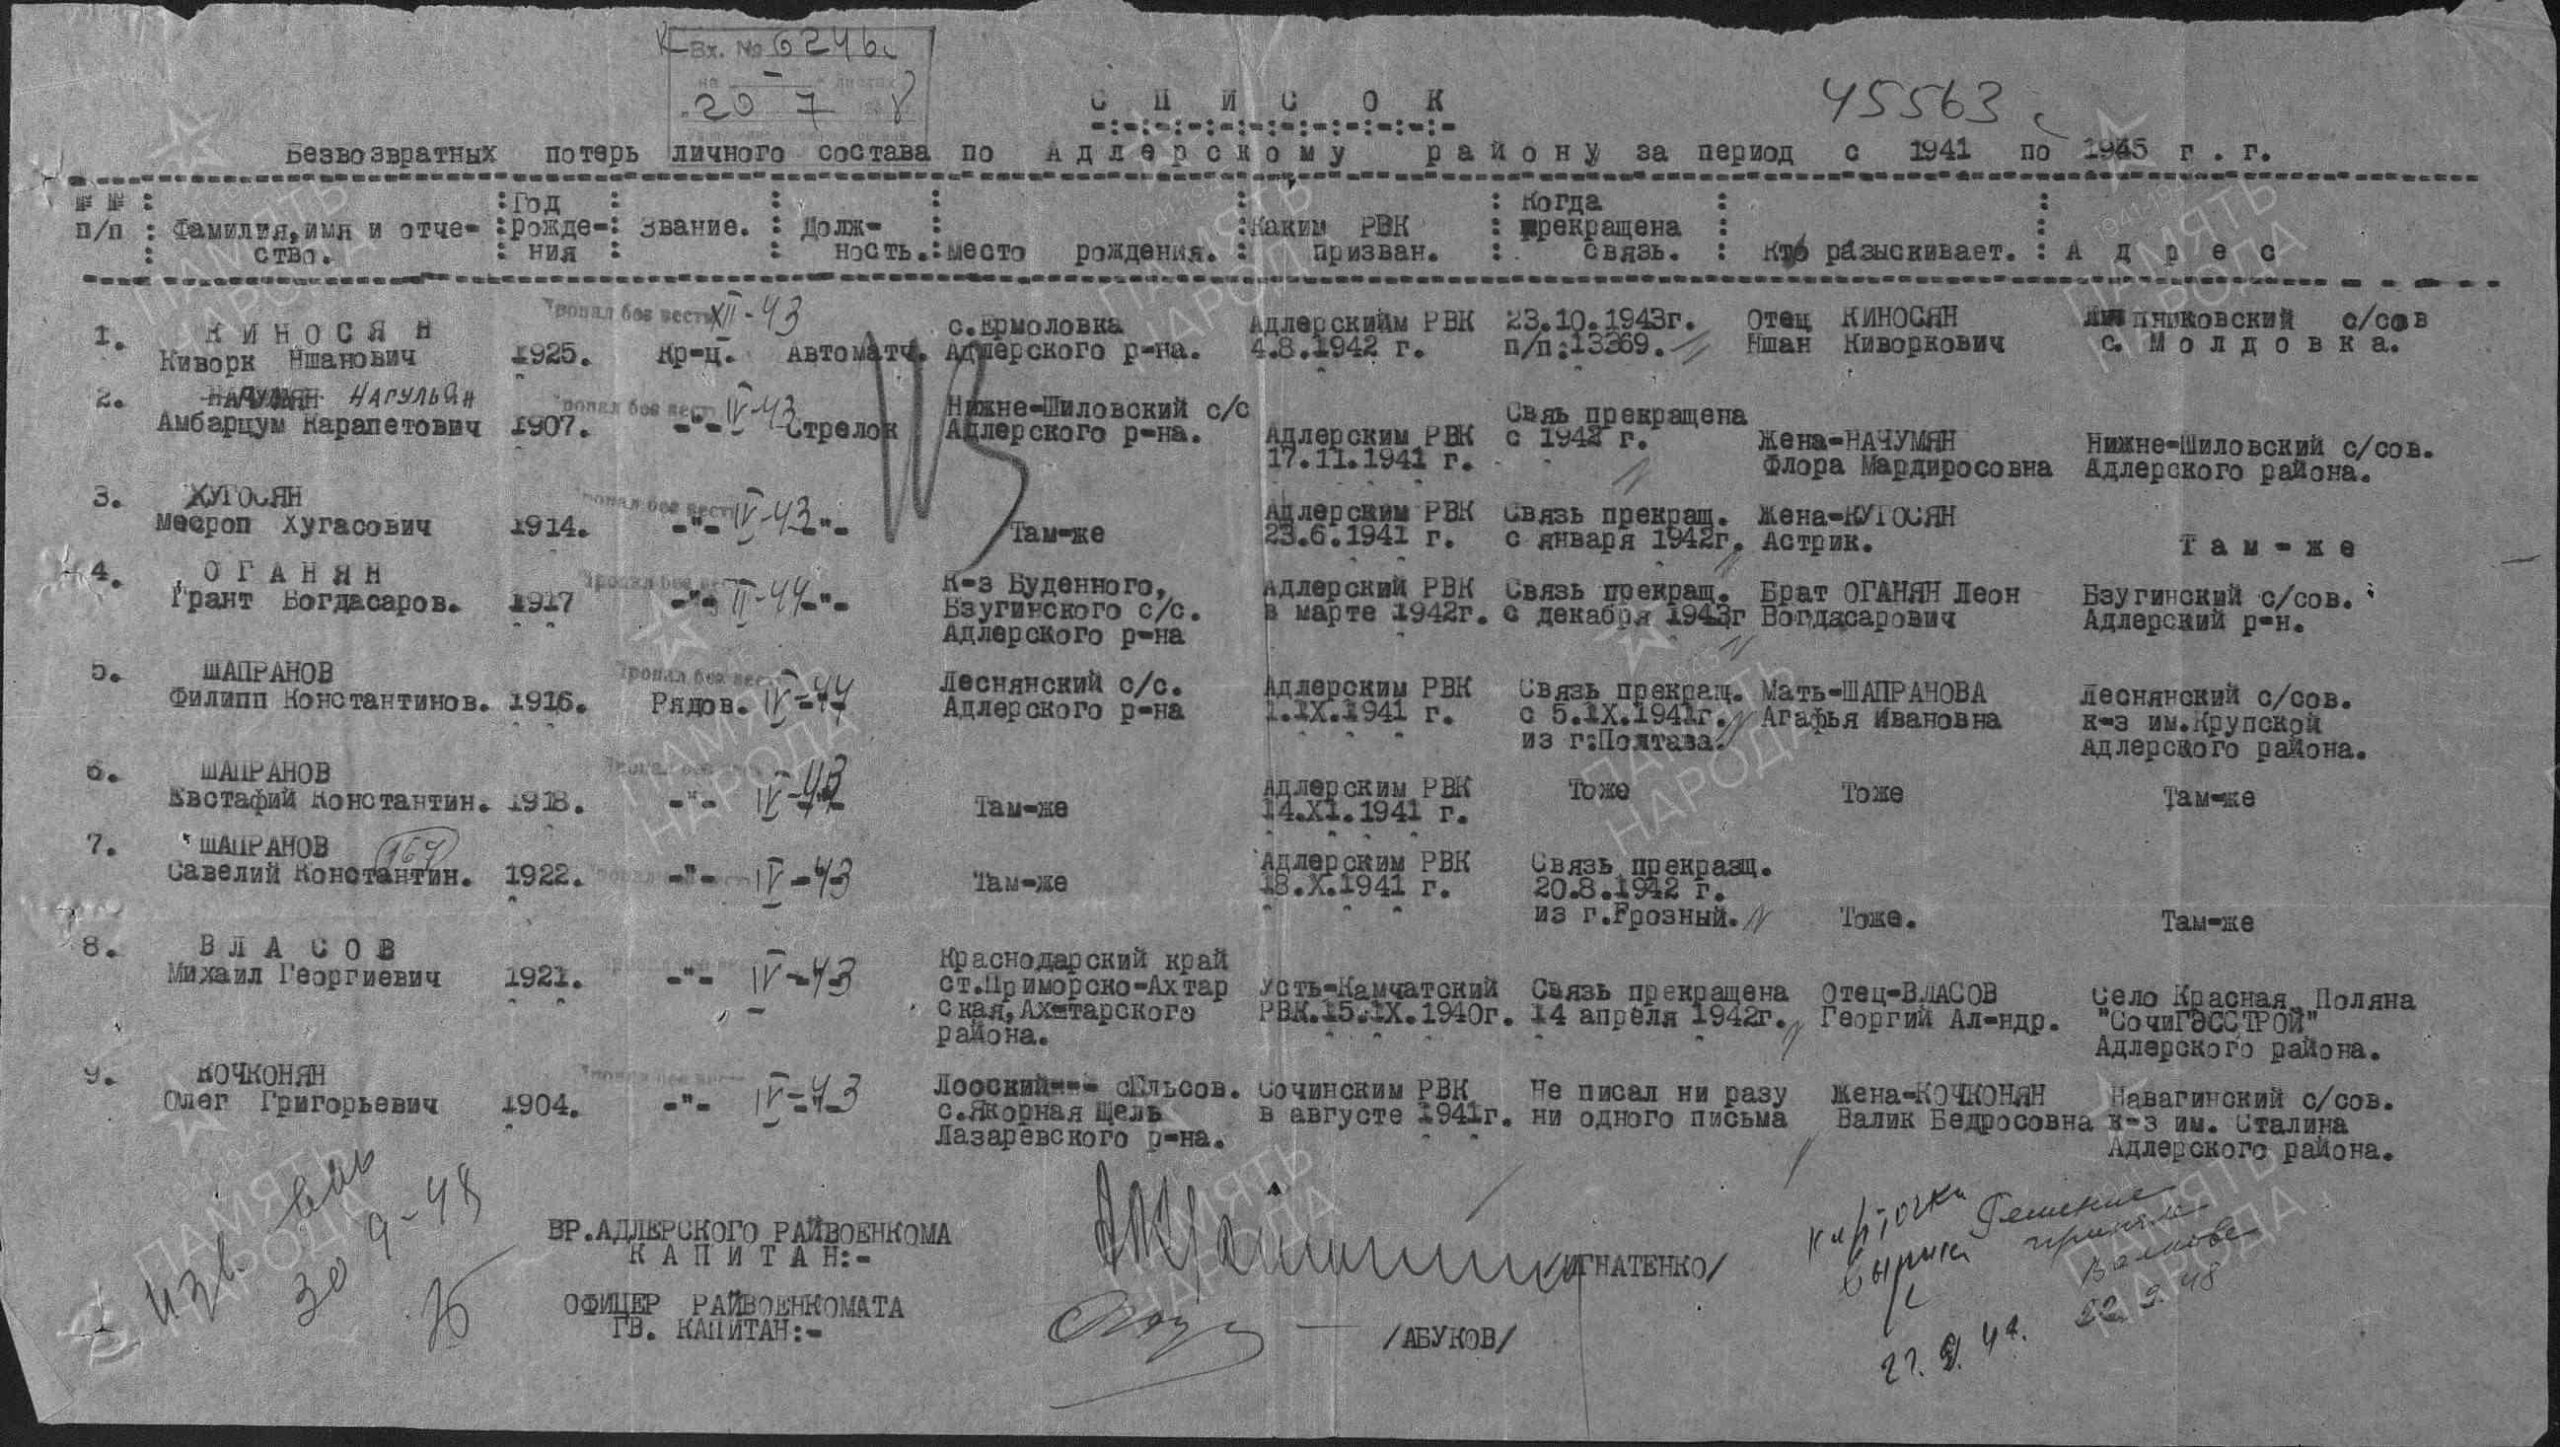 Вх. № 6246с
20 7 8
С П И С О К
45563 с
Безвозвратных потерь личного состава по Адлерскому району за период с 1941 по 1945 г.г.
№№ п/п : Фамилия, имя и отчество. : Год рождения : Звание. : Должность. : место рождения. : Каким РВК призван. : Когда прекращена связь. : Кто разыскивает. : А д р е с
Пропал без вести XII-43
1. К И Н О С Я Н с.Ермоловка Адлерскийм РВК 23.10.1943г. Отец КИНОСЯН Липниковский с/сов
Киворк Ншанович 1925. Кр-ц. Автоматч. Адлерского р-на. 4.8.1942 г. п/п:13369. Ншан Киворкович с. М о л д о в к а.
2. НАЧУМЯН НАГУЛЬЯН Пропал без вести IV-43 Нижне-Шиловский с/с Свяь прекращена
Амбарцум Карапетович 1907. -"- Стрелок Адлерского р-на. Адлерским РВК с 1942 г. Жена-НАЧУМЯН Нижне-Шиловский с/сов.
17.11.1941 г. Флора Мардиросовна Адлерского района.
3. ХУГОСЯН Пропал без вести IV-43 Адлерским РВК Связь прекращ. Жена-КУГОСЯН
Месроп Хугасович 1914. -"- -"- Там-же 23.6.1941 г. с января 1942г. Астрик. Т а м - ж е
4. О Г А Н Я Н Пропал без вести II-44 К-з Буденного, Адлерский РВК Связь прекращ. Брат ОГАНЯН Леон Бзугинский с/сов.
Грант Богдасаров. 1917 -"- -"- Бзугинского с/с. в марте 1942г. с декабря 1943г Богдасарович Адлерский р-н.
Адлерского р-на
5. ШАПРАНОВ Пропал без вести IV-44 Леснянский с/с. Адлерским РВК Связь прекращ. Мать-ШАПРАНОВА Леснянский с/сов.
Филипп Константинов. 1916. Рядов. Адлерского р-на 1.IX.1941 г. с 5.IX.1941г. Агафья Ивановна к-з им.Крупской
из г:Полтава. Адлерского района.
6. ШАПРАНОВ Адлерским РВК Тоже Тоже
Евстафий Константин. 1918. -"- IV-43 Там-же 14.XI.1941 г. Там-же
7. ШАПРАНОВ Адлерским РВК Связь прекразщ.
Савелий Константин. 1922. -"- IV-43 Там-же 18.X.1941 г. 20.8.1942 г.
из г.Грозный. Тоже. Там-же
8. В Л А С О В Краснодарский край
Михаил Георгиевич 1921. -"- IV-43 ст.Приморско-Ахтар Усть-Камчатский Связь прекращена Отец-ВЛАСОВ Село Красная Поляна
ская,Ахтарского РВК.15.IX.1940г. 14 апреля 1942г. Георгий Ал-ндр. "СочиГЭССТРОЙ"
района. Адлерского района.
9. КОЧКОНЯН Лооский--- сЕльсов. Сочинским РВК Не писал ни разу Жена-КОЧКОНЯН Навагинский с/сов.
Олег Григорьевич 1904. -"- IV-43 с.Якорная Щель в августе 1941г. ни одного письма Валик Бедросовна к-з им. Сталина
Лазаревского р-на. Адлерского района.
ВР.АДЛЕРСКОГО РАЙВОЕНКОМА
К А П И Т А Н:- /ИГНАТЕНКО/
ОФИЦЕР РАЙВОЕНКОМАТА
ГВ. КАПИТАН:- /АБУКОВ/
изв.
30 9-48
карточки
Решение
22.9.48
ПАМЯТЬ НАРОДА
1941-1945